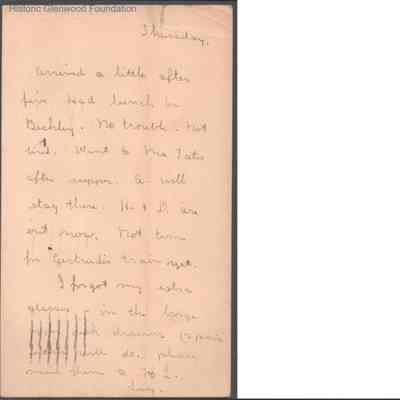 Historic Glenwood Foundation
Thursday.
Arrived a little after
five. Had lunch in
Beckley. No trouble. Not
tired. Went to Mrs Tates
after supper. A. will
stay there. H. & D. are
out now. Not time
for Gertrude's train yet.
I forgot my extra
glasses - in the large
drawers (2 pairs
will do. please
send them to
Lucy.